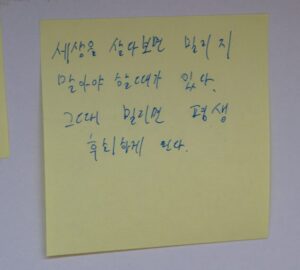 세상을 살다보면 밀리지
말아야 할때가 있다.
그때 밀리면 평생
후회하게 된다.